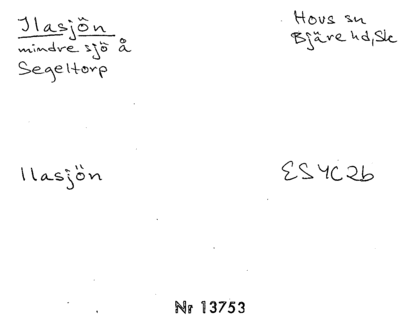 Ilasjön
mindre sjö å
Segeltorp
Hovs sn
Bjäre hd, Sk
Ilasjön
ES4C2b
Nr 13753